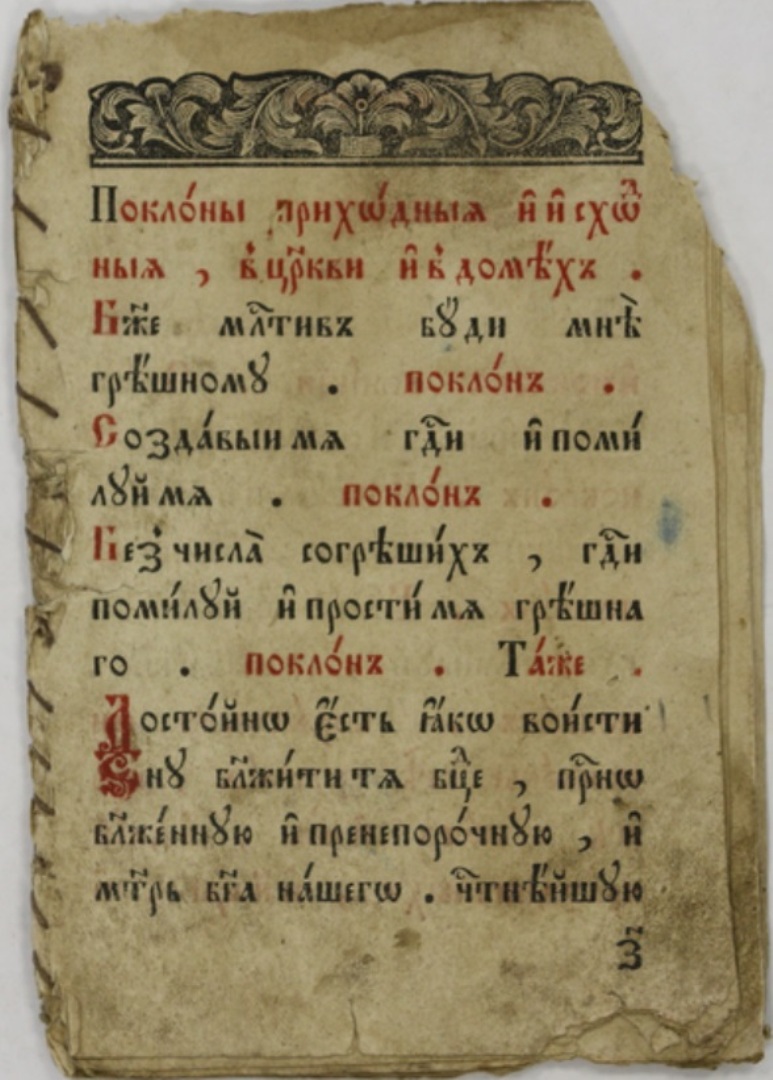 Покло́ны прихѡ́дныѧ и҆ и҆схѡⷣ
ныѧ , в҆ цр҃кви и҆ в҆ домѣ́хъ .
Бж҃е мл҃тивъ бꙋ́ди мнѣ̀
грѣ́шномꙋ . покло́нъ .
Созда́выи мѧ гд҃и и҆ поми́
лꙋй мѧ . покло́нъ .
Без̾ числа̀ согрѣши́хъ , гд҃и
поми́лꙋй и҆ прости́ мѧ грѣ́шна
го . покло́нъ . Та́же .
Досто́йнѡ є҆́сть ꙗ҆́кѡ вои́сти
нꙋ бл҃жи́ти тѧ бцⷣе , прⷭ҇нѡ
бл҃же́ннꙋю и҆ пренепоро́чнꙋю , и҆
мт҃рь бг҃а на́шегѡ . чт҃нѣ́йшꙋю
з